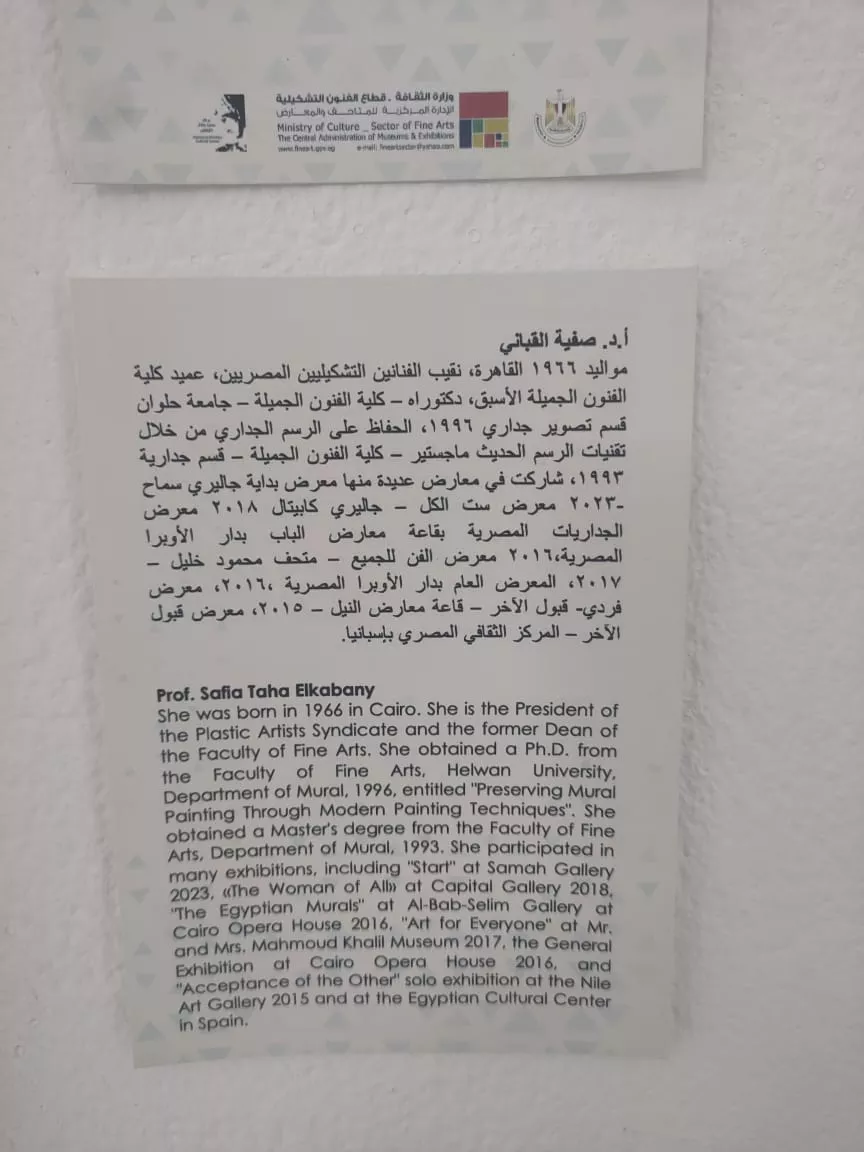 وزارة الثقافة . قطاع الفنون التشكيلية
الإدارة المركزية للمتاحف والمعارض
Ministry of Culture _ Sector of Fine Arts
The Central Administration of Museums & Exhibitions
www.fineart.gov.eg e-mail: fineartsector@yahoo.com
أ.د. صفية القباني
مواليد ١٩٦٦ القاهرة، نقيب الفنانين التشكيليين المصريين، عميد كلية
الفنون الجميلة الأسبق، دكتوراه – كلية الفنون الجميلة – جامعة حلوان
قسم تصوير جداري ١٩٩٦، الحفاظ على الرسم الجداري من خلال
تقنيات الرسم الحديث ماجستير – كلية الفنون الجميلة – قسم جدارية
١٩٩٣، شاركت في معارض عديدة منها معرض بداية جاليري سماح
-٢٠٢٣ معرض ست الكل – جاليري كابيتال ٢٠١٨ معرض
الجداريات المصرية بقاعة معارض الباب بدار الأوبرا
المصرية،٢٠١٦ معرض الفن للجميع – متحف محمود خليل –
٢٠١٧، المعرض العام بدار الأوبرا المصرية ،٢٠١٦، معرض
فردي- قبول الأخر – قاعة معارض النيل – ٢٠١٥، معرض قبول
الآخر – المركز الثقافي المصري بإسبانيا.
Prof. Safia Taha Elkabany
She was born in 1966 in Cairo. She is the President of
the Plastic Artists Syndicate and the former Dean of
the Faculty of Fine Arts. She obtained a Ph.D. from
the Faculty of Fine Arts, Helwan University,
Department of Mural, 1996, entitled "Preserving Mural
Painting Through Modern Painting Techniques". She
obtained a Master's degree from the Faculty of Fine
Arts, Department of Mural, 1993. She participated in
many exhibitions, including "Start" at Samah Gallery
2023, «The Woman of All» at Capital Gallery 2018,
"The Egyptian Murals" at Al-Bab-Selim Gallery at
Cairo Opera House 2016, "Art for Everyone" at Mr.
and Mrs. Mahmoud Khalil Museum 2017, the General
Exhibition at Cairo Opera House 2016, and
"Acceptance of the Other" solo exhibition at the Nile
Art Gallery 2015 and at the Egyptian Cultural Center
in Spain.